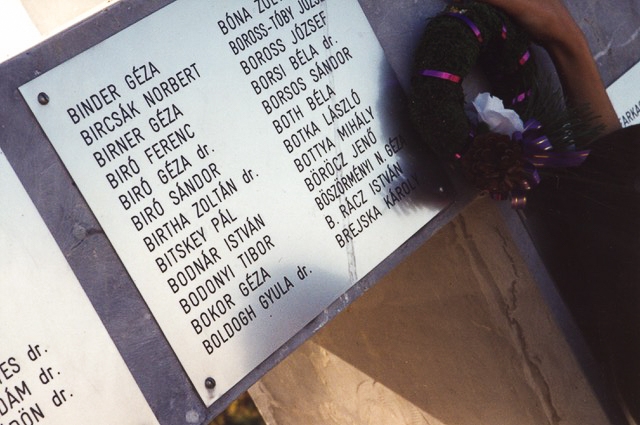 BINDER GÉZA
BIRCSÁK NORBERT
BIRNER GÉZA
BIRÓ FERENC
BIRÓ GÉZA dr.
BIRÓ SÁNDOR
BIRTHA ZOLTÁN dr.
BITSKEY PÁL
BODNÁR ISTVÁN
BODONYI TIBOR
BOKOR GÉZA
BOLDOGH GYULA dr.
BÓNA
BOROSS-TÓBY
BOROSS JÓZSEF
BORSI BÉLA dr.
BORSOS SÁNDOR
BOTH BÉLA
BOTKA LÁSZLÓ
BOTTYA MIHÁLY
BÖRÖCZ JENŐ
BÖSZÖRMÉNYI N. GÉZA
B. RÁCZ ISTVÁN
BREJSKA KÁROLY
dr.
dr.
dr.